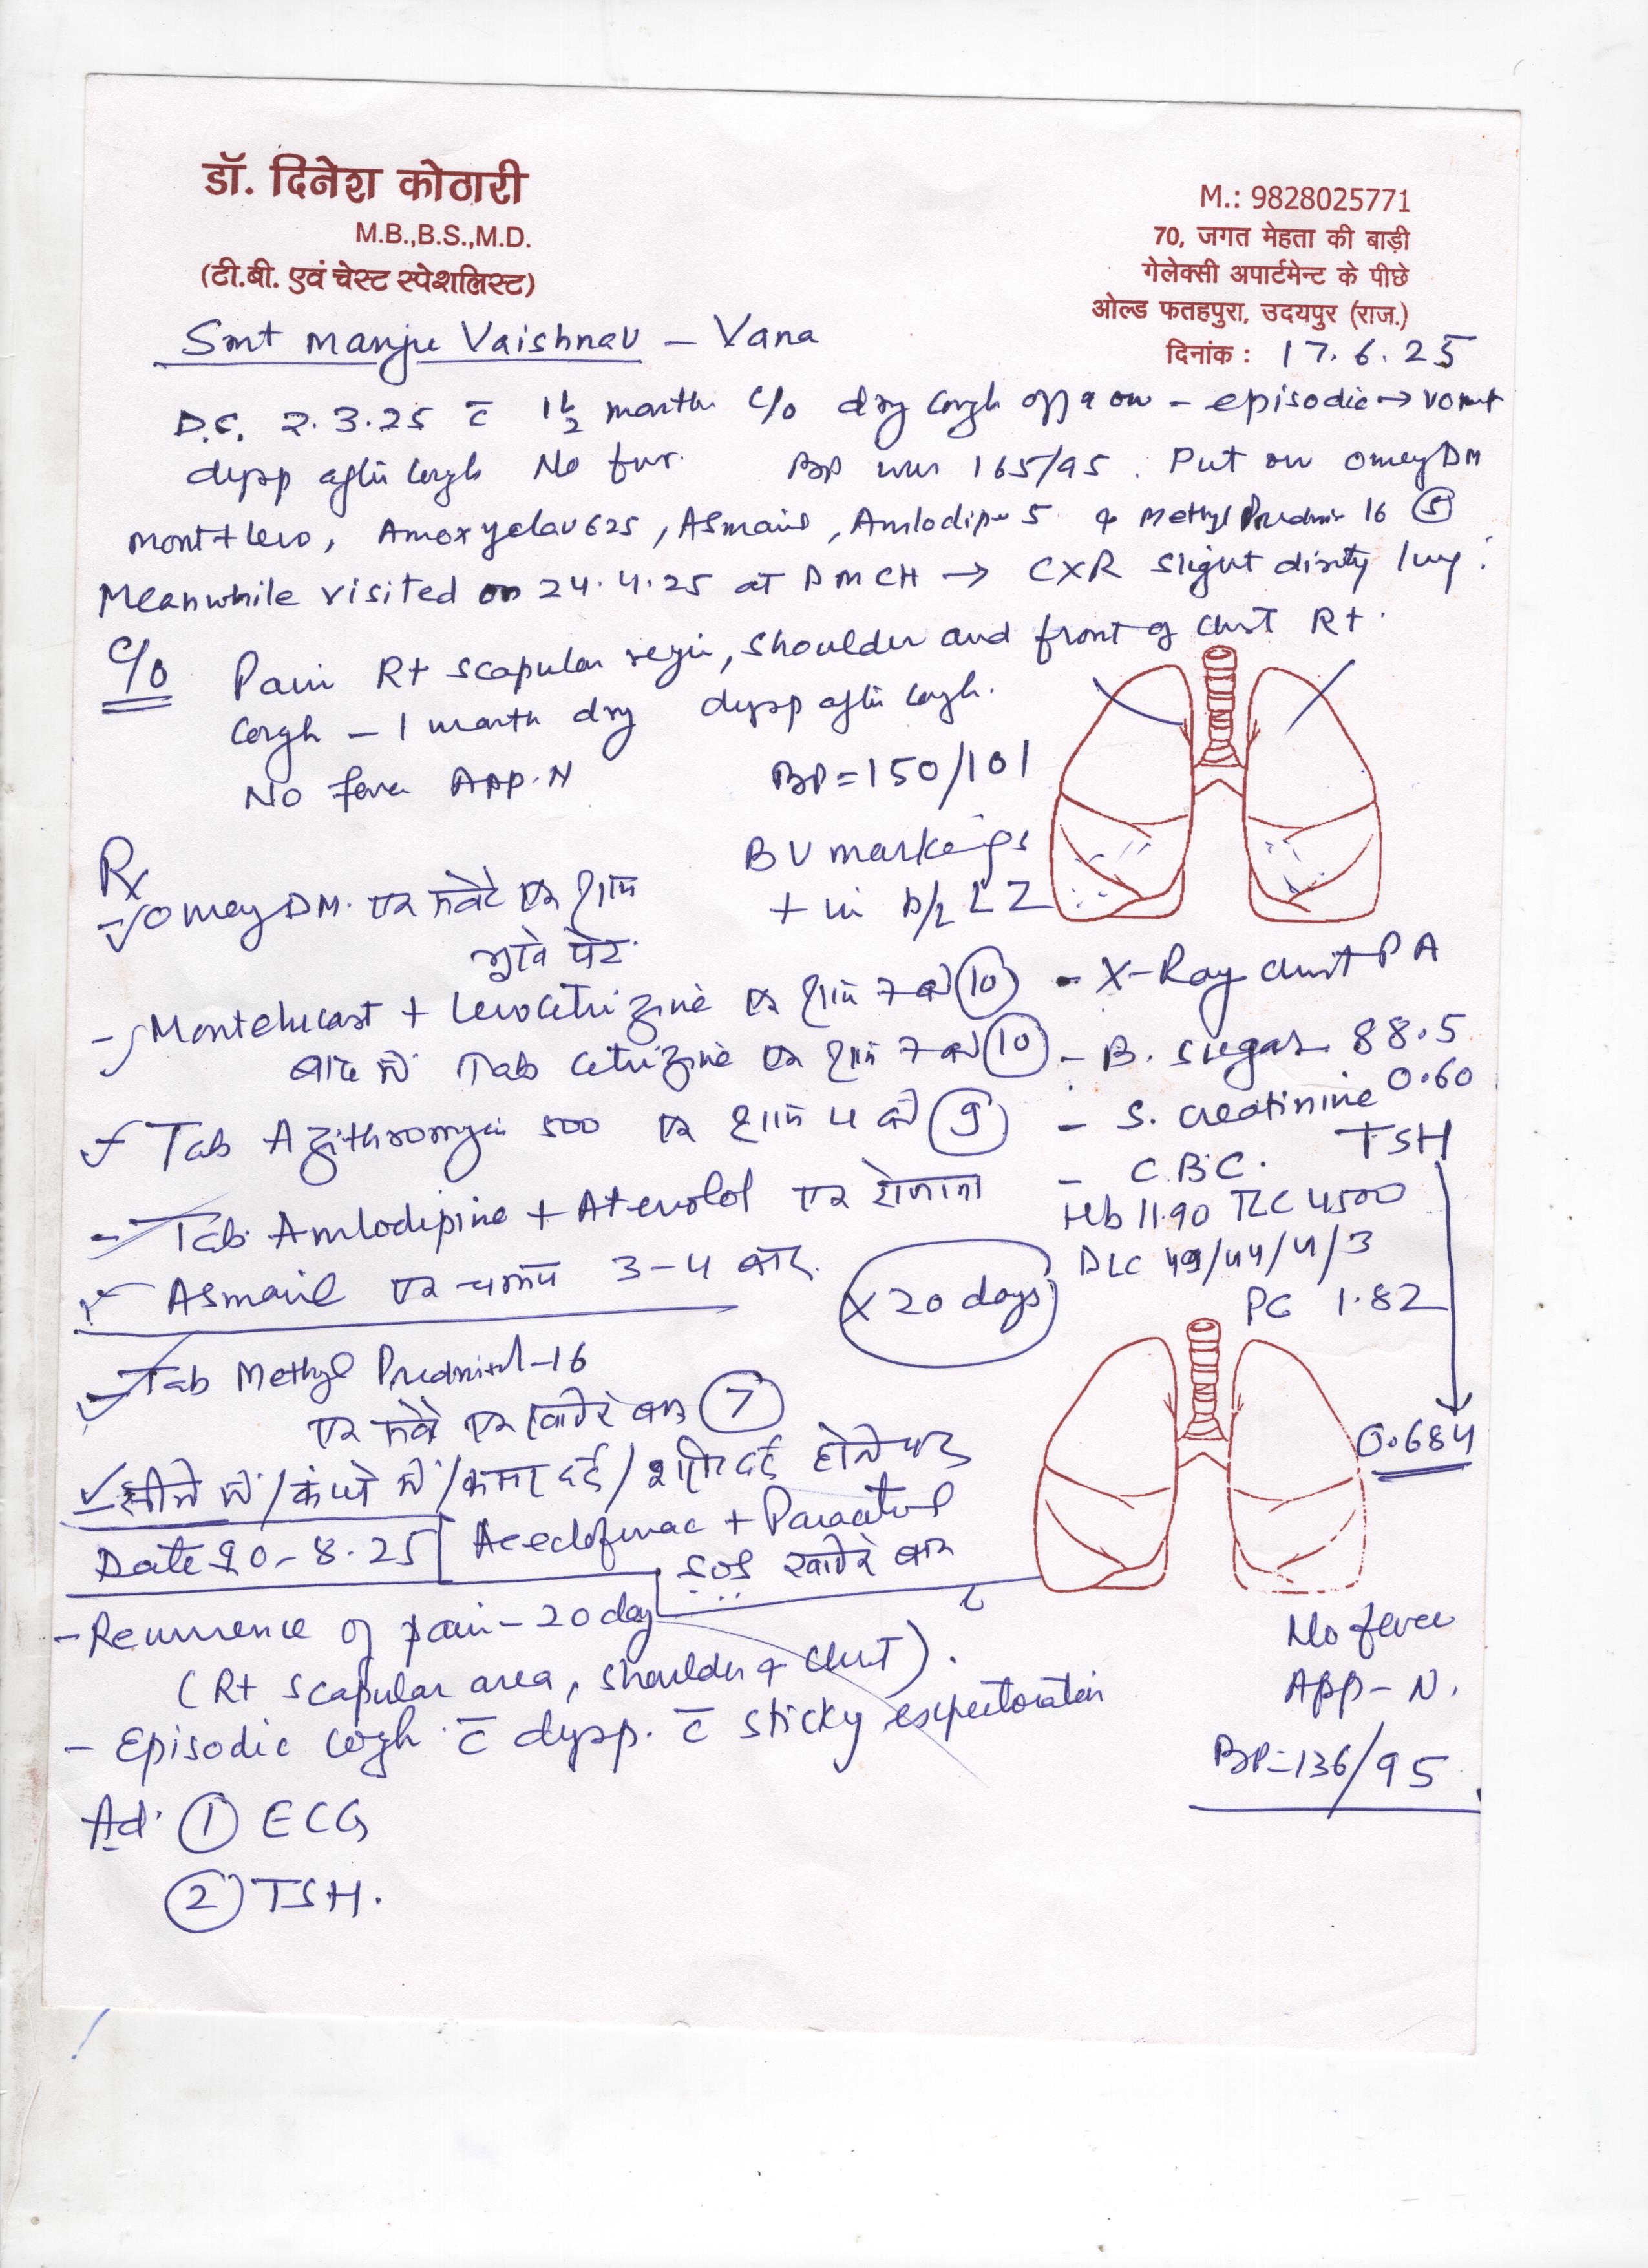 डॉ. दिनेश कोठारी
M.B.,B.S.,M.D.
(टी.बी. एवं चेस्ट स्पेशलिस्ट)
M.: 9828025771
70, जगत मेहता की बाड़ी
गेलेक्सी अपार्टमेन्ट के पीछे
ओल्ड फतहपुरा, उदयपुर (राज.)
दिनांक : 17.6.25
Smt Manju Vaishnav - Vana
2.3.25 c̄ 1½ month c/o dry cough off & on - episodic →
dysp after cough No BP was 165/95. Put on omeyDM
Mont+levo, Amoxyclav625, , Amlodipine 5 & Methyl 16 (5)
Meanwhile visited on 24.4.25 at → CXR slight dirty lung
C/o Pain Rt scapular region, shoulder and front of chest Rt.
Cough - 1 month dry dysp after cough.
No fever App. N BP=150/101
BV markings
+ in b/L LZ
Rx
- omeyDM. एक सवेरे एक शाम
भूखे पेट
- Montelucast + levocitrizine एक शाम 7 बजे (10)
बाद में Tab citrizine एक शाम 7 बजे (10)
- Tab Azithromycin 500 एक शाम 4 बजे (9)
- Tab. Amlodipine + Atenolol एक रोजाना
एक चम्मच 3-4 बार.
X 20 days
- X-Ray chest PA
- B. sugar 88.5
- S. creatinine 0.60
- C.B.C. TSH
Hb 11.90 TLC 4500
DLC 49/44/4/3
PC 1.82
0.684
- Tab Methyl -16
एक सवेरे एक खाने के बाद (7)
सीने में/कंधो में/कमर दर्द/ होने पर
Aceclofenac + Paracetamol
SOS खाने के बाद
Date 20-8.25
- Recurrence of pain - 20 day
(Rt scapular area, shoulder & chest).
- Episodic cough c̄ dysp. c̄ sticky expectoration
No fever
App - N.
BP=136/95
Ad. (1) ECG
(2) TSH.